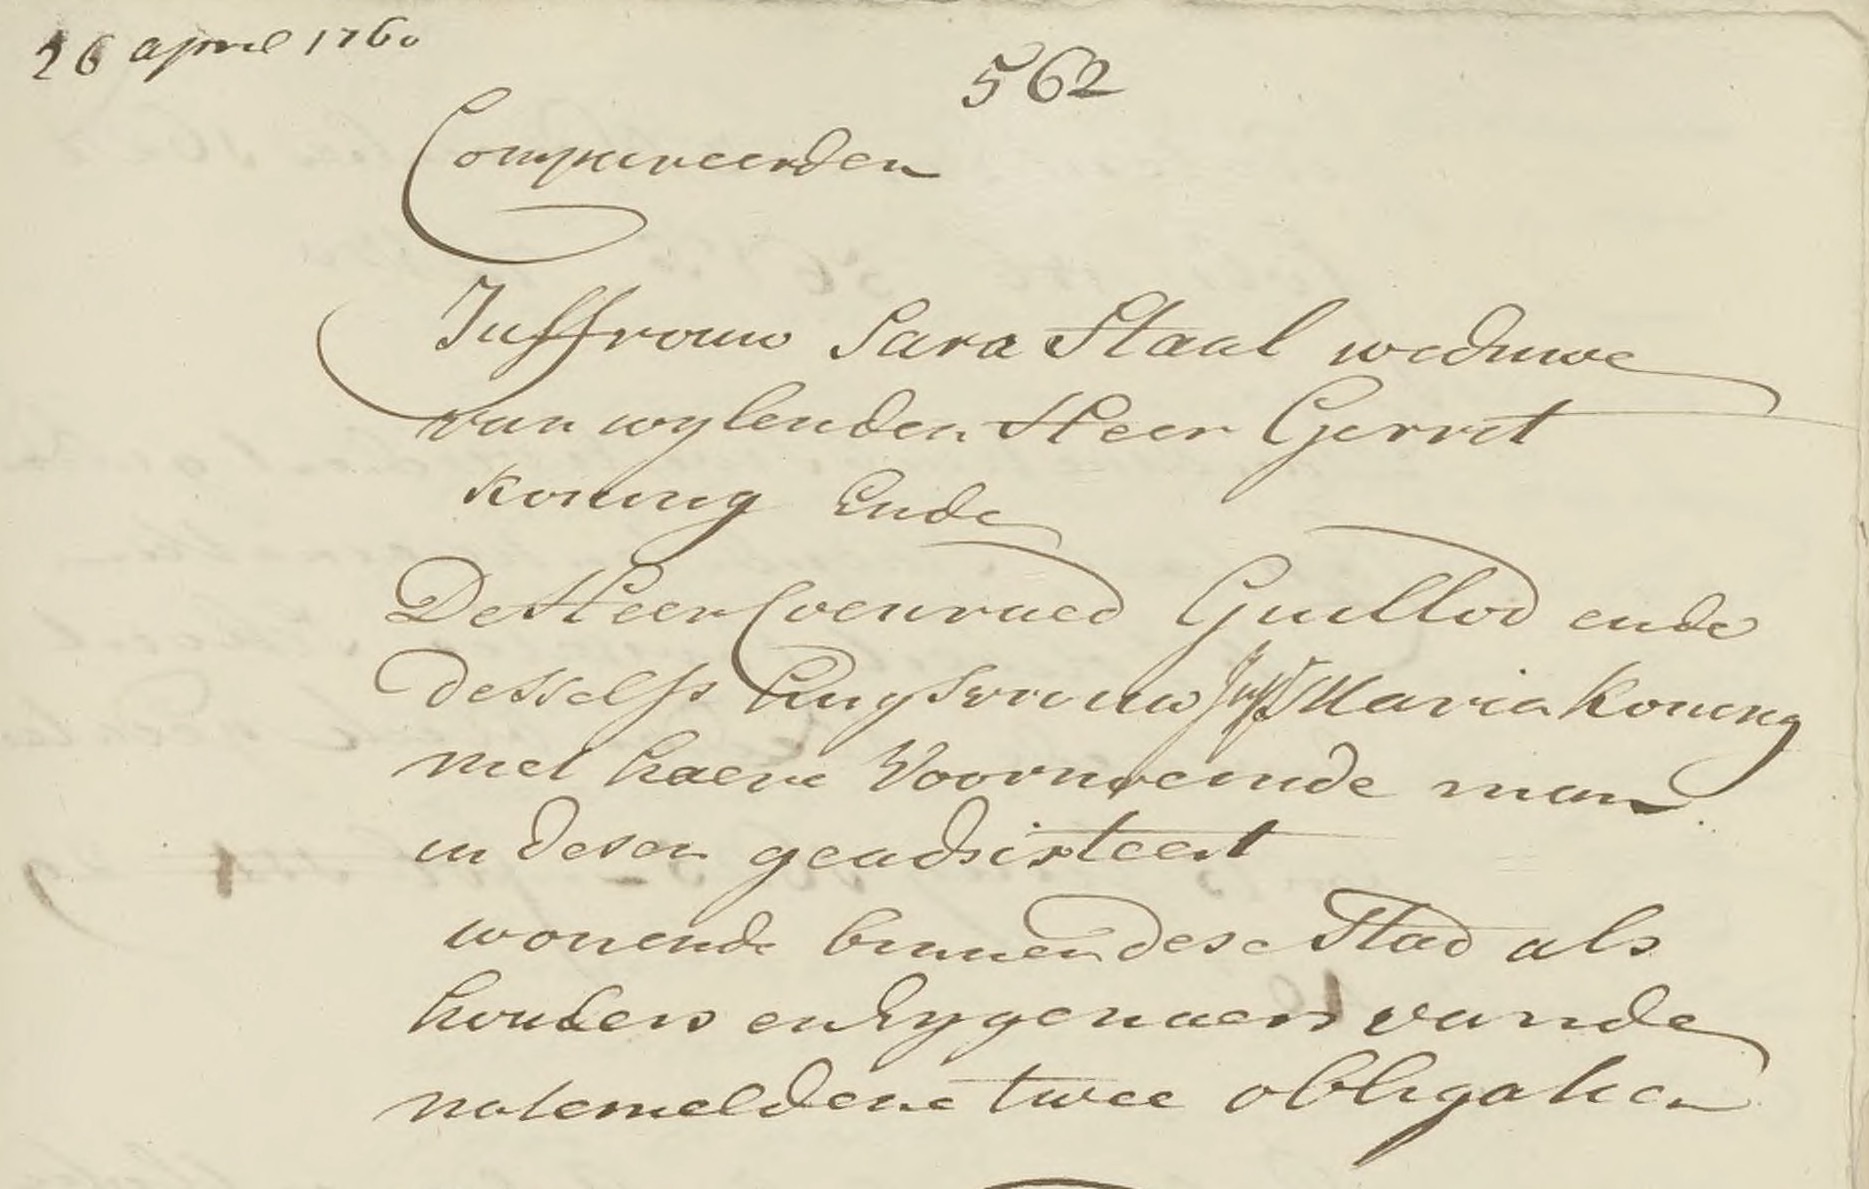 26 april 1760
562
Compareerden
Juffrouw Sara Staal weduwe
van wylenden Heer Gerret
Koning Ende
De Heer Coenraed Guillod ende
desselfs huysvrouw Juffr Maria Koning
met haere Voornoemde man
in desen geadsisteert
wonende binnen dese Stad als
houders en Eygenaers vande
natemeldene twee obligatien